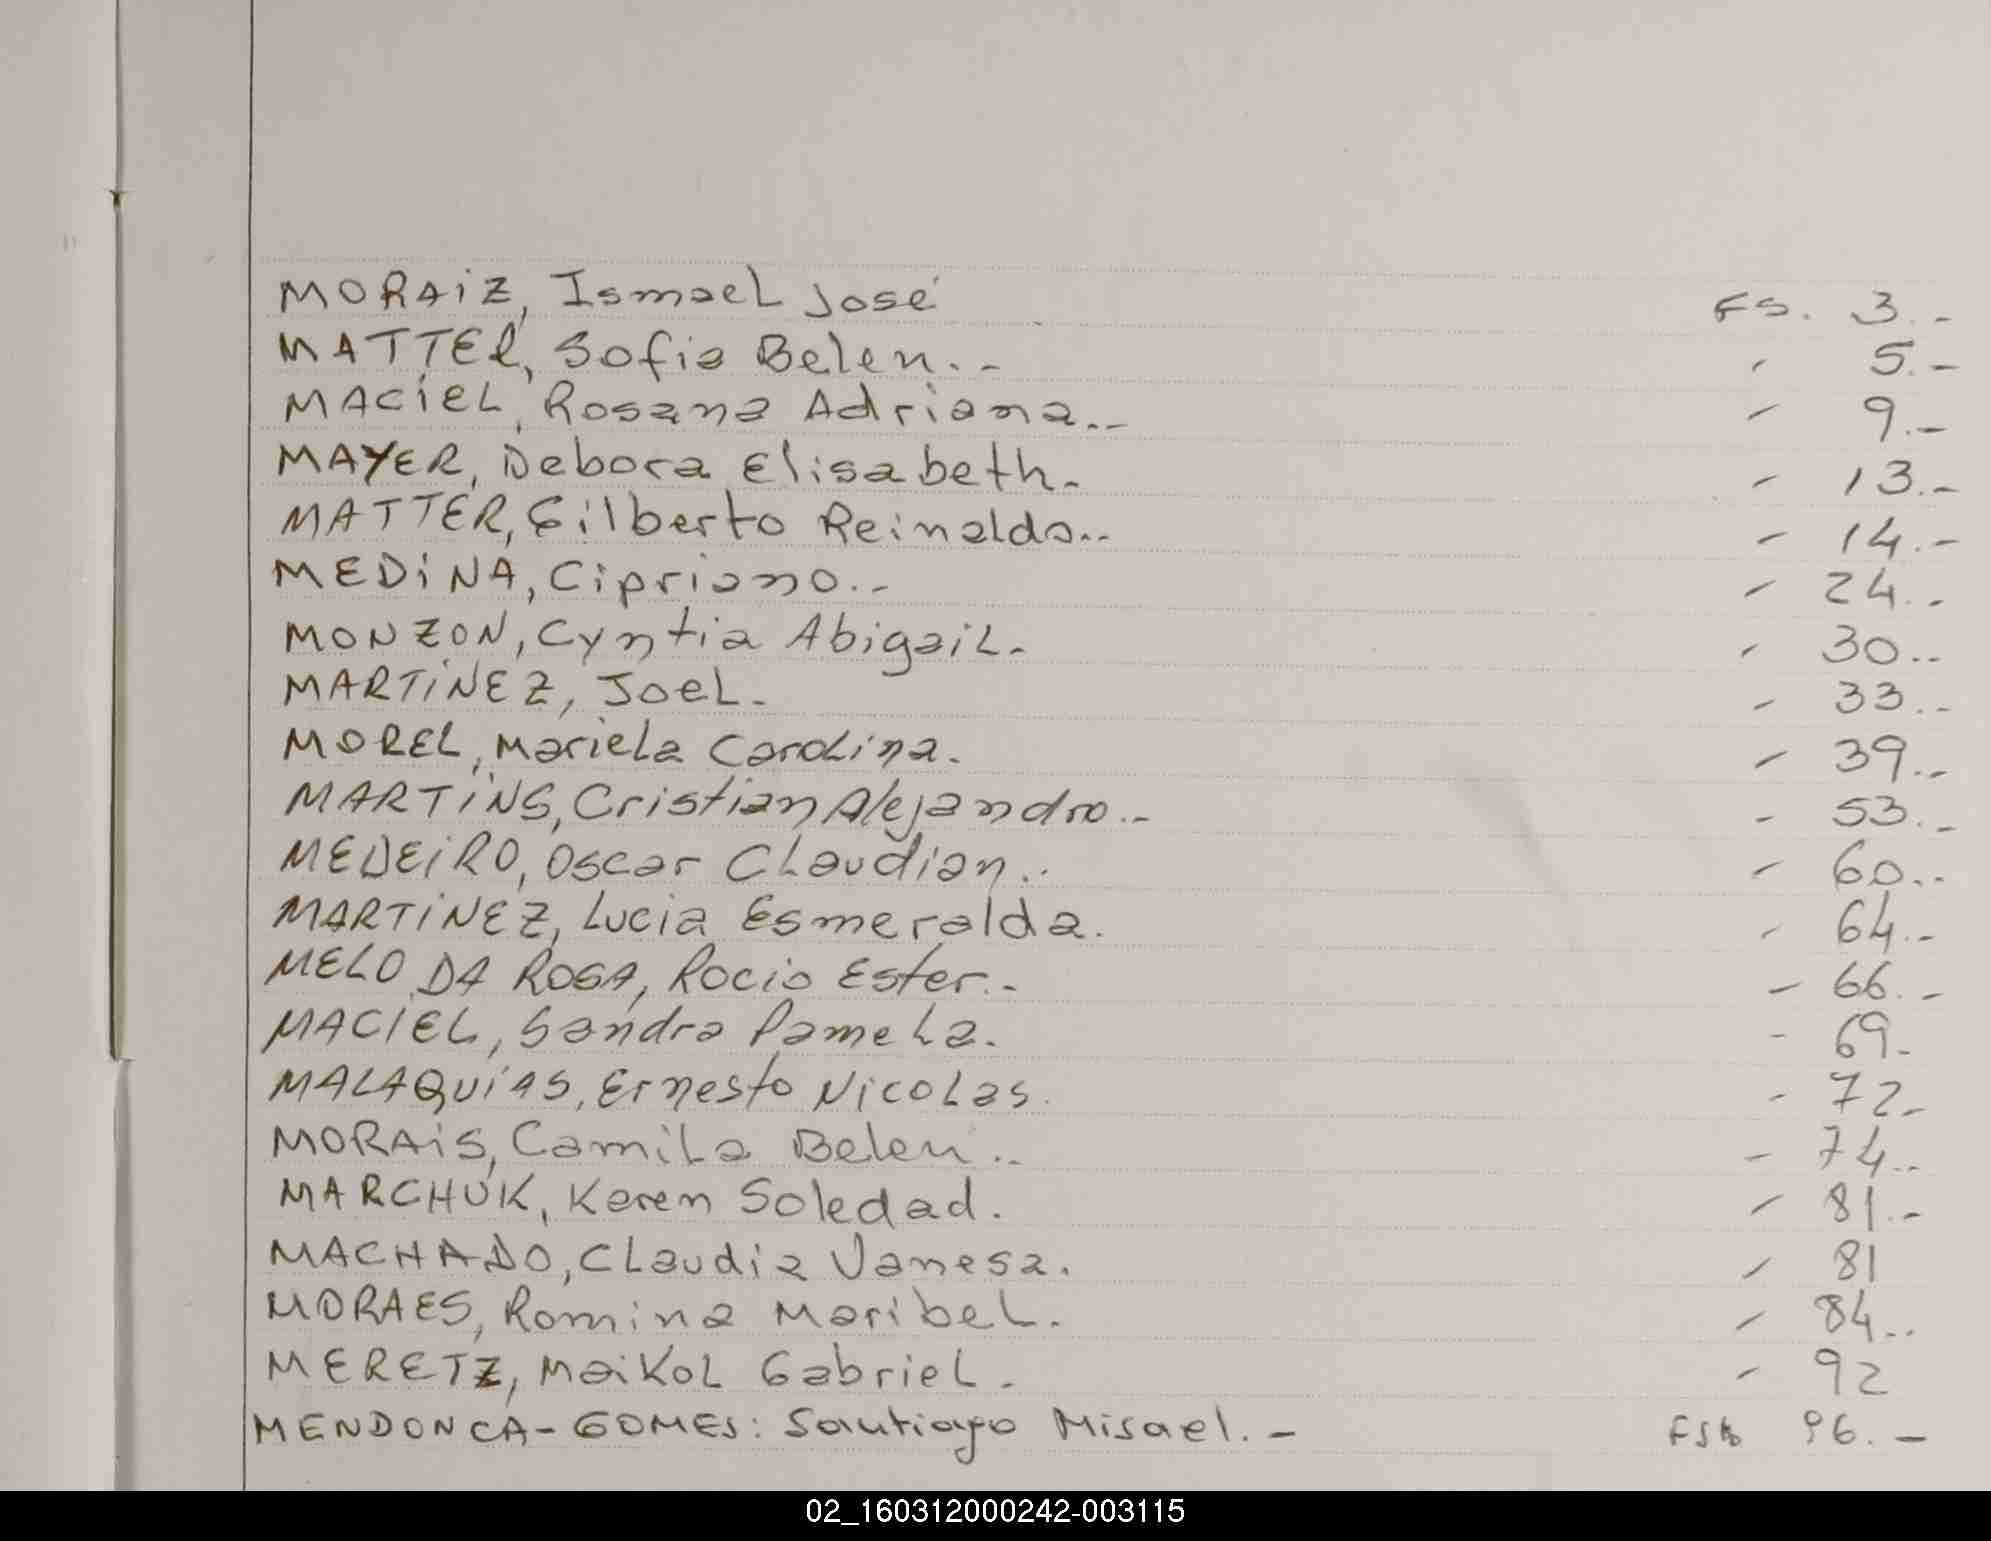 MORAiZ, Ismael José FS. 3.-
MATTER, Sofia Belen.- ' 5.-
MACiEL, Rosana Adriana.- - 9.-
MAYER, Debora Elisabeth.- - 13.-
MATTER, Gilberto Reinaldo.. - 14.-
MEDiNA, Cipriano.- - 24..
MONZON, Cyntia Abigail.- ' 30..
MARTiNEZ, Joel.- - 33..
MOREL, Mariela Carolina. - 39..
MARTiNS, Cristian Alejandro.- - 53.-
MEDEiRO, Oscar Claudian.. - 60..
MARTiNEZ, Lucia Esmeralda. - 64.-
MELO DA ROSA, Rocio Ester.- - 66.-
MACIEL, Sandra Pamela. - 69.-
MALAQUiAS, Ernesto Nicolas. - 72.-
MORAiS, Camila Belen.. - 74..
MARCHUK, Karen Soledad. - 81.-
MACHADO, Claudia Vanesa. - 81
MORAES, Romina Maribel. - 84..
MERETZ, Maikol Gabriel. - 92
MENDONCA-GOMES: Santiago Misael.- 96.-
02_160312000242-003115